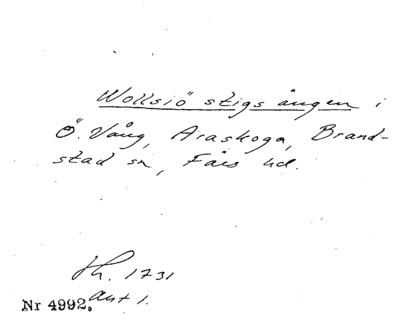 Wollsiö stigs ängen i
Ö. Vång, Araskoga, Brand-
stad sn, Färs hd.
Th. 1731
akt 1.
Nr 4992.